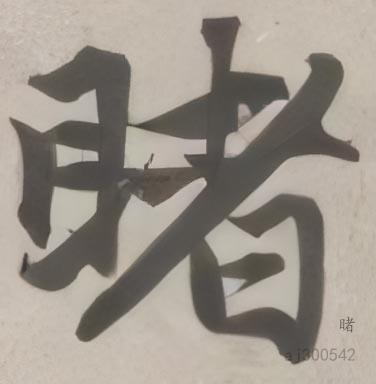 睹
睹
aj300542